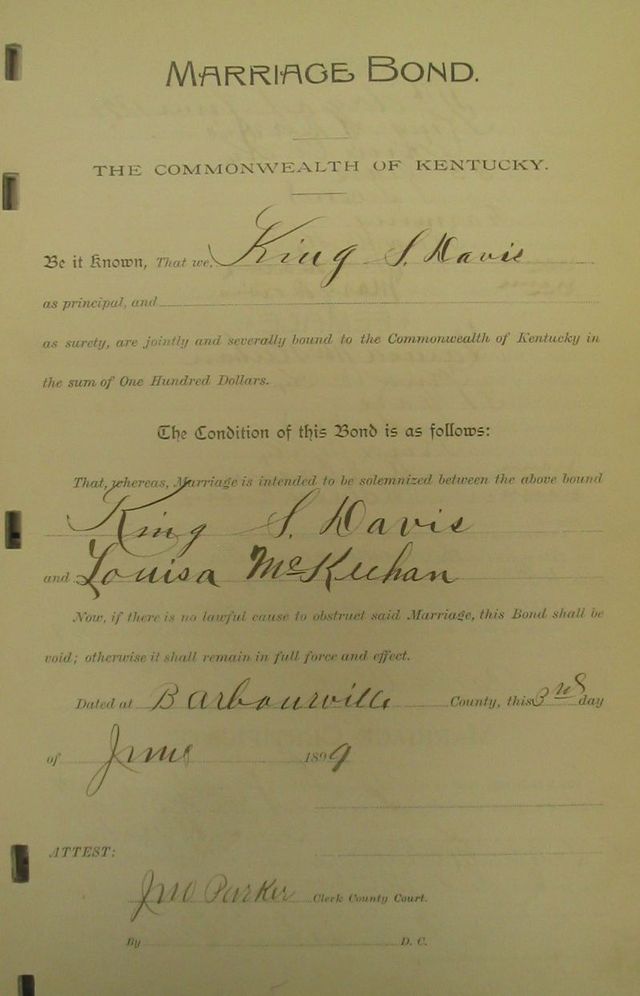 MARRIAGE BOND.
THE COMMONWEALTH OF KENTUCKY.
Be it Known, That we, King S. Davis
as principal, and
as surety, are jointly and severally bound to the Commonwealth of Kentucky in
the sum of One Hundred Dollars.
The Condition of this Bond is as follows:
That, whereas, Marriage is intended to be solemnized between the above bound
King S. Davis
and Louisa McKeehan
Now, if there is no lawful cause to obstruct said Marriage, this Bond shall be
void; otherwise it shall remain in full force and effect.
Dated at Barbourville County, this 3rd day
of June 1899
ATTEST:
Jno Parker Clerk County Court.
By D. C.